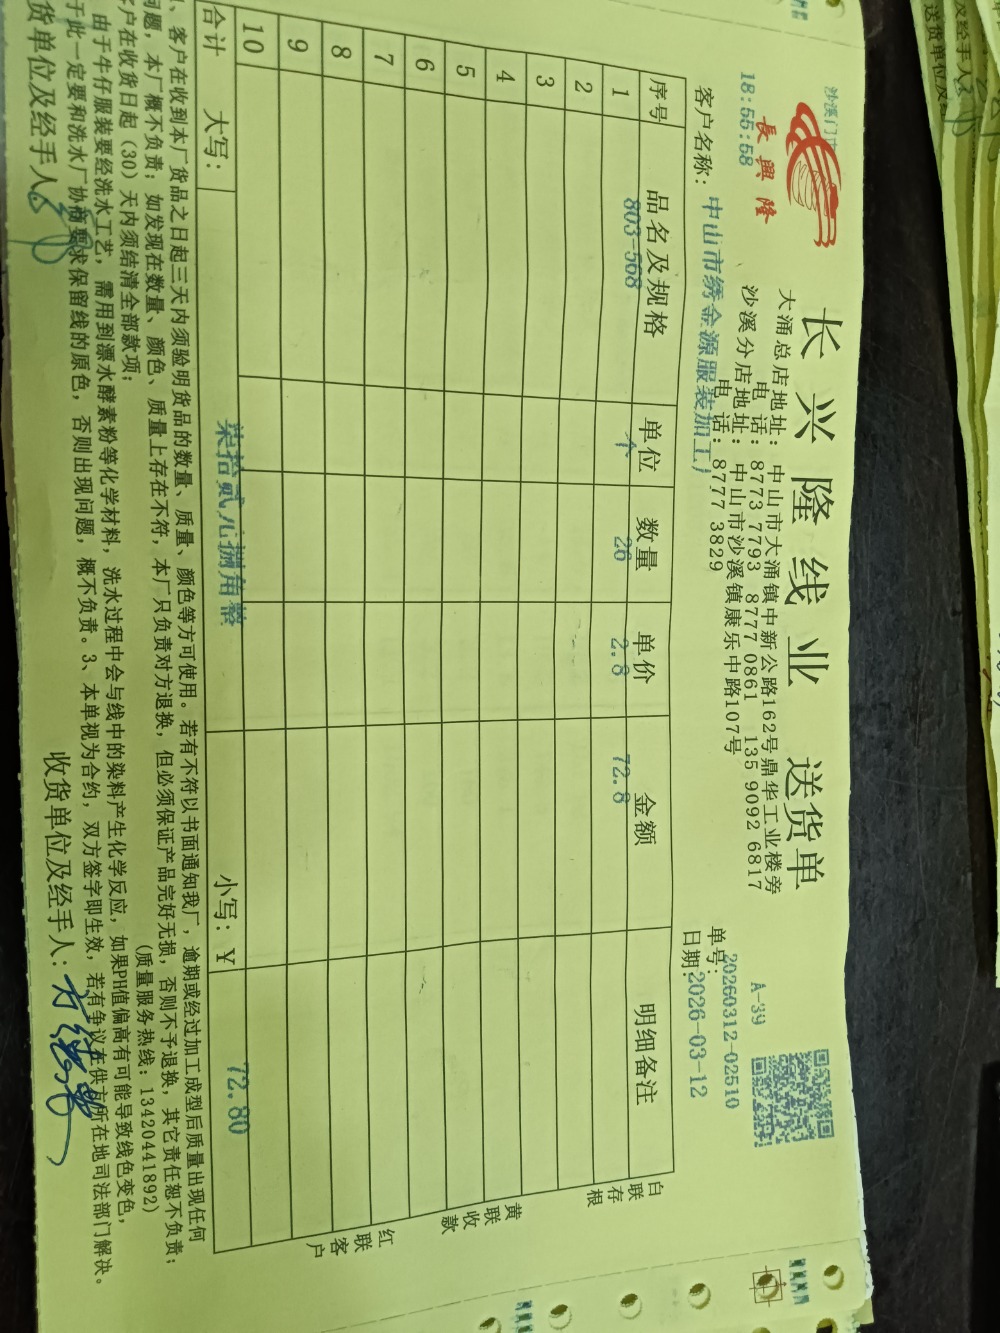 沙溪门市
18:55:58
長興隆
长兴隆线业 送货单
大涌总店地址: 中山市大涌镇中新公路162号鼎华工业楼旁
电 话: 8773 7793 8777 0861 135 9092 6817
沙溪分店地址: 中山市沙溪镇康乐中路107号
电 话: 8777 3829
A-39
单号: 20260312-02510
日期: 2026-03-12
客户名称: 中山市绣金源服装加工厂
序号 品名及规格 单位 数量 单价 金额 明细备注
1 803-568 个 26 2.8 72.8
2
3
4
5
6
7
8
9
10
合计 大写: 柒拾贰元捌角整 小写: ¥ 72.80
白联存根
黄联收款
红联客户
、客户在收到本厂货品之日起三天内须验明货品的数量、质量、颜色等方可使用。若有不符以书面通知我厂, 逾期或经过加工成型后质量出现任何
问题, 本厂概不负责; 如发现在数量、颜色、质量上存在不符, 本厂只负责对方退换, 但必须保证产品完好无损, 否则不予退换, 其它责任恕不负责;
客户在收货日起 (30) 天内须结清全部款项; (质量服务热线: 13420441892)
由于牛仔服装要经洗水工艺, 需用到漂水酵素粉等化学材料, 洗水过程中会与线中的染料产生化学反应, 如果PH值偏高有可能导致线色变色,
于此一定要和洗水厂协商要求保留线的原色, 否则出现问题, 概不负责。3、本单视为合约, 双方签字即生效, 若有争议在供方所在地司法部门解决。
货单位及经手人: 收货单位及经手人:
送货单位及经